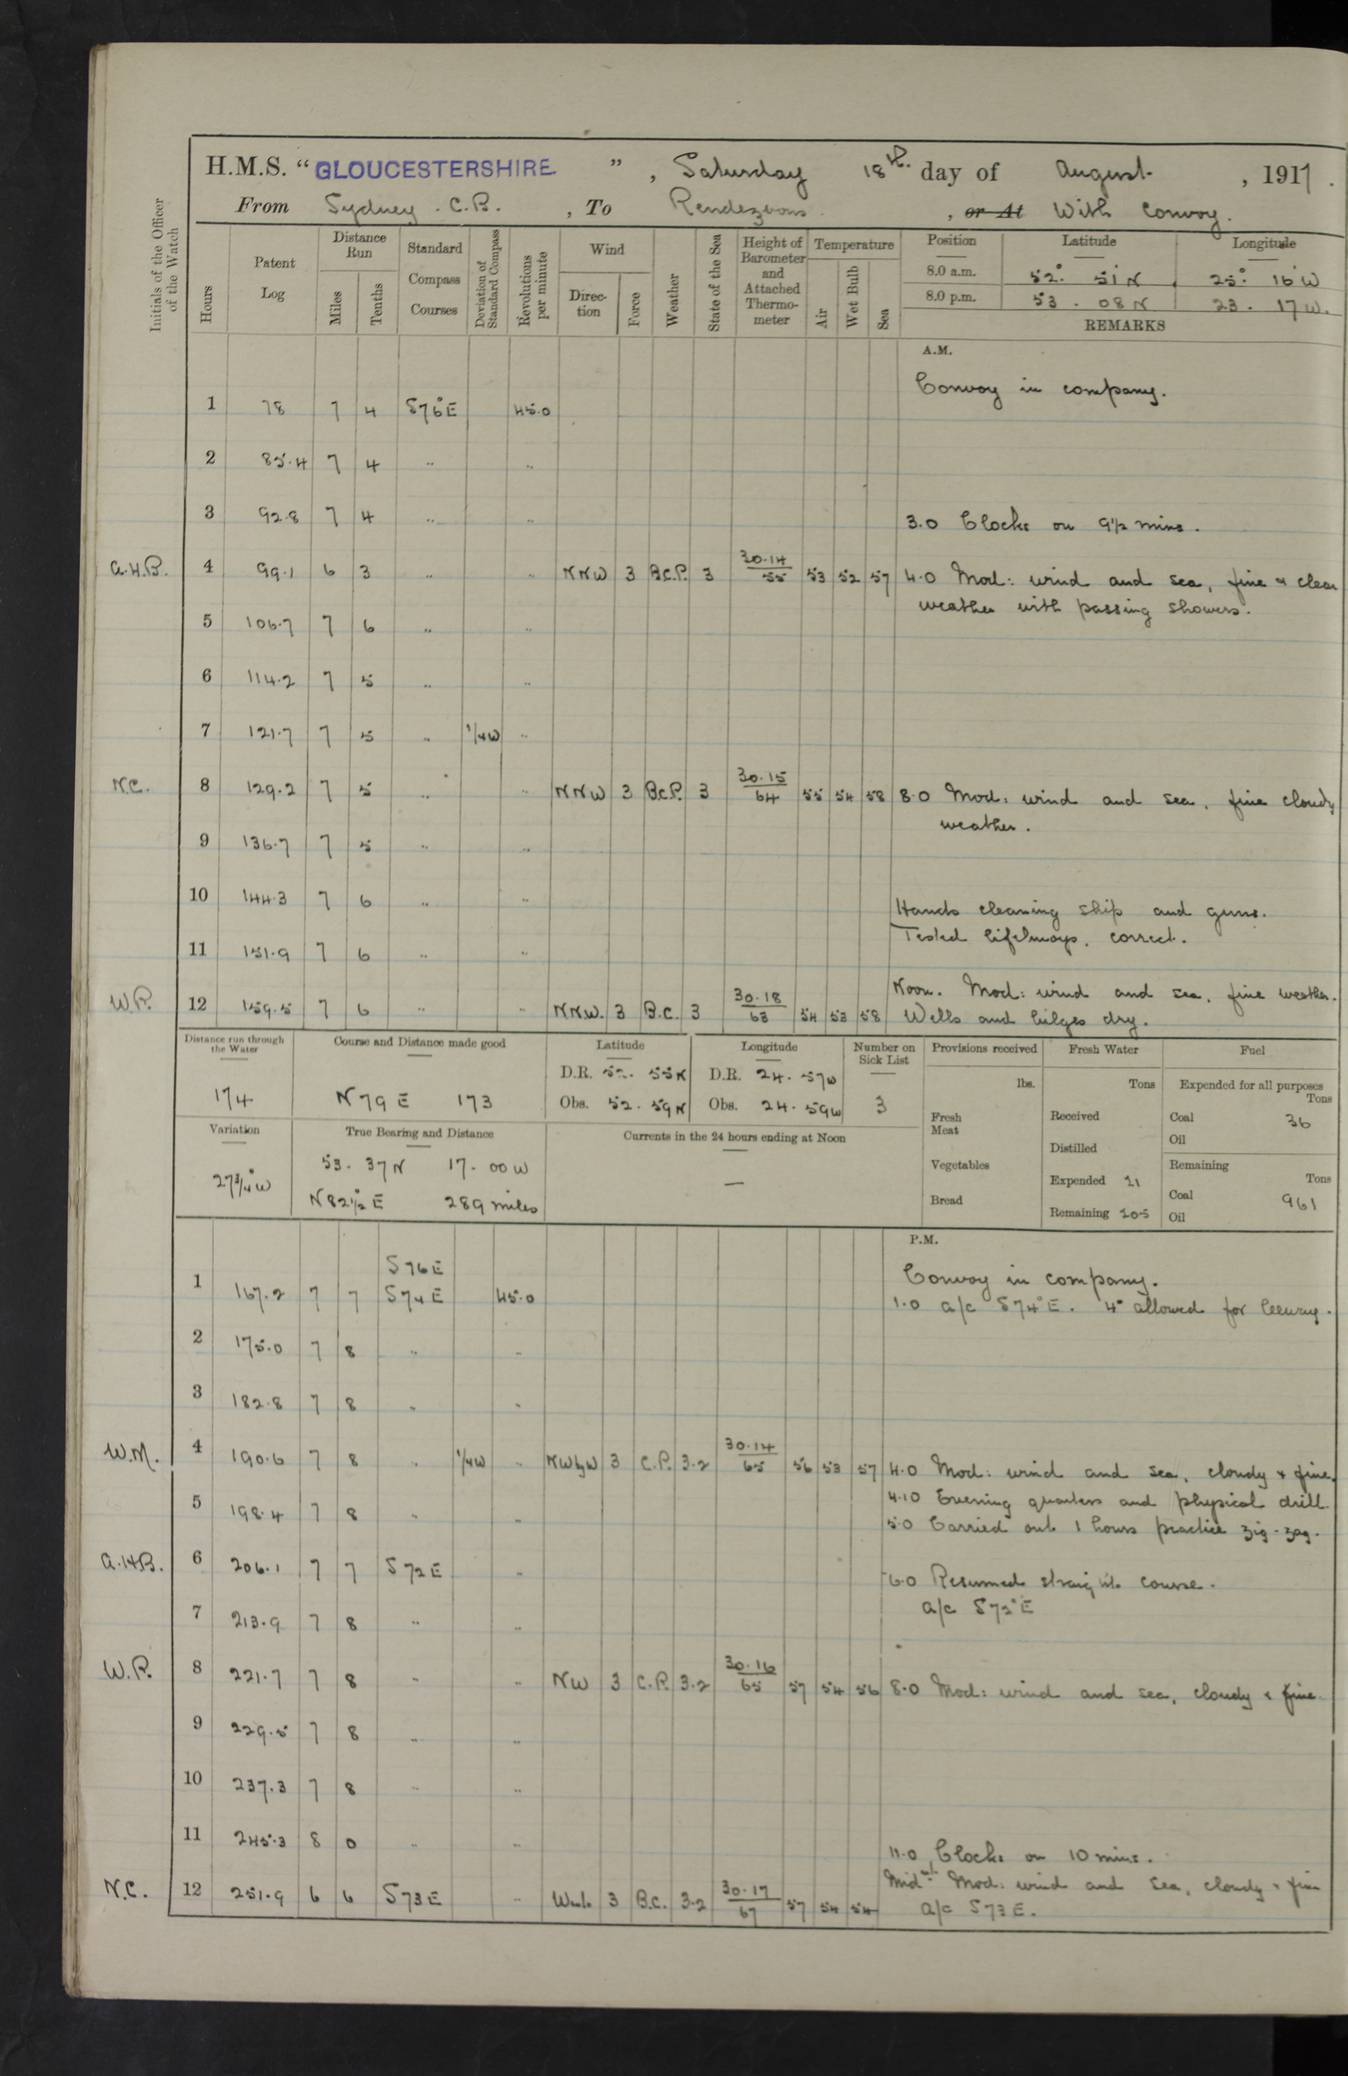 H.M.S. "GLOUCESTERSHIRE", Saturday 18th day of August, 1917.
From Sydney. C.B., To Rendezvous, or At With Convoy.
Initials of the Officer of the Watch
Hours
Patent Log
Distance Run
Miles
Tenths
Standard Compass Courses
Deviation of Standard Compass
Revolutions per minute
Wind
Direction
Force
Weather
State of the Sea
Height of Barometer and Attached Thermometer
Temperature
Air
Wet Bulb
Sea
Position Latitude Longitude
8.0 a.m. 52° 51' N 25° 16' W
8.0 p.m. 53. 08 N 23. 17 W.
REMARKS
A.M.
Convoy in company.
1 78 7 4 S76°E 45.0
2 85.4 7 4 " "
3 92.8 7 4 " " 3.0 Clocks on 9½ mins.
A.H.B. 4 99.1 6 3 " " NNW 3 B.C.P. 3 30.14/55 53 52 57 4.0 Mod: wind and sea, fine & clear
weather with passing showers.
5 106.7 7 6 " "
6 114.2 7 5 " "
7 121.7 7 5 " ¼W "
N.C. 8 129.2 7 5 " " NNW 3 B.C.P. 3 30.15/64 55 54 58 8.0 Mod: wind and sea, fine cloudy
weather.
9 136.7 7 5 " "
10 144.3 7 6 " " Hands cleaning ship and guns.
Tested lifebuoys, correct.
11 151.9 7 6 " "
Noon. Mod: wind and sea, fine weather.
W.P. 12 159.5 7 6 " " NNW. 3 B.C. 3 30.18/63 54 53 58 Wells and bilges dry.
Distance run through the Water
174
Course and Distance made good
N 79 E 173
Latitude
D.R. 52. 55 N
Obs. 52. 59 N
Longitude
D.R. 24. 57 W
Obs. 24. 59 W
Number on Sick List
3
Provisions received
lbs.
Fresh Meat
Vegetables
Bread
Fresh Water
Tons
Received
Distilled
Expended 21
Remaining 205
Fuel
Expended for all purposes
Tons
Coal 36
Oil
Remaining
Tons
Coal 961
Oil
Variation
27¾°W
True Bearing and Distance
53. 37 N 17. 00 W
N 82½ E 289 miles
Currents in the 24 hours ending at Noon
—
P.M.
S76E
Convoy in company.
1 167.2 7 7 S74E 45.0 1.0 a/c S74°E. 4° allowed for leeway.
2 175.0 7 8 " "
3 182.8 7 8 " "
W.M. 4 190.6 7 8 " ¼W " NWbyW 3 C.P. 3.2 30.14/65 56 53 57 4.0 Mod: wind and sea, cloudy & fine.
4.10 Evening quarters and physical drill.
5 198.4 7 8 " " 5.0 Carried out 1 hours practice zig-zag.
A.H.B. 6 206.1 7 7 S72E " 6.0 Resumed straight course.
a/c S72°E
7 213.9 7 8 " "
W.P. 8 221.7 7 8 " " NW 3 C.P. 3.2 30.16/65 57 54 56 8.0 Mod: wind and sea, cloudy & fine
9 229.5 7 8 " "
10 237.3 7 8 " "
11 245.3 8 0 " " 11.0 Clocks on 10 mins.
Midnt Mod: wind and sea, cloudy & fine
N.C. 12 251.9 6 6 S73E " 3 B.C. 3.2 30.17/67 57 54 54 a/c S73E.